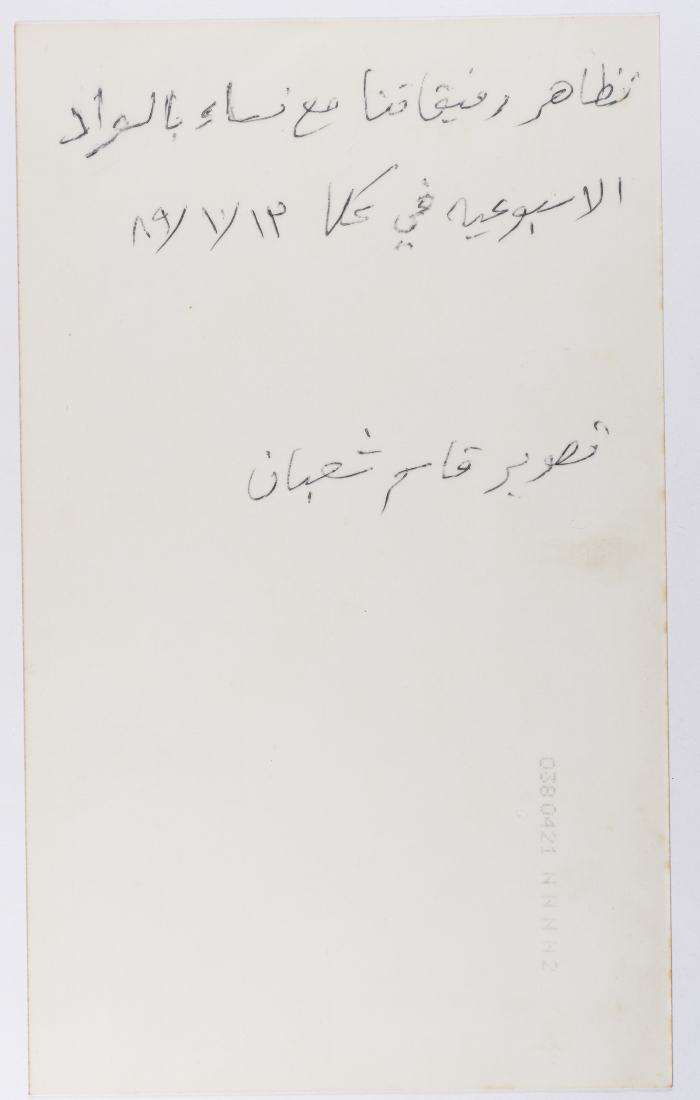 تظاهر رفيقاتنا مع نساء بالسواد
الاسبوعيه في عكا ١٣/١/٨٩
تصوير قاسم شعبان
0380421 N N N N 2